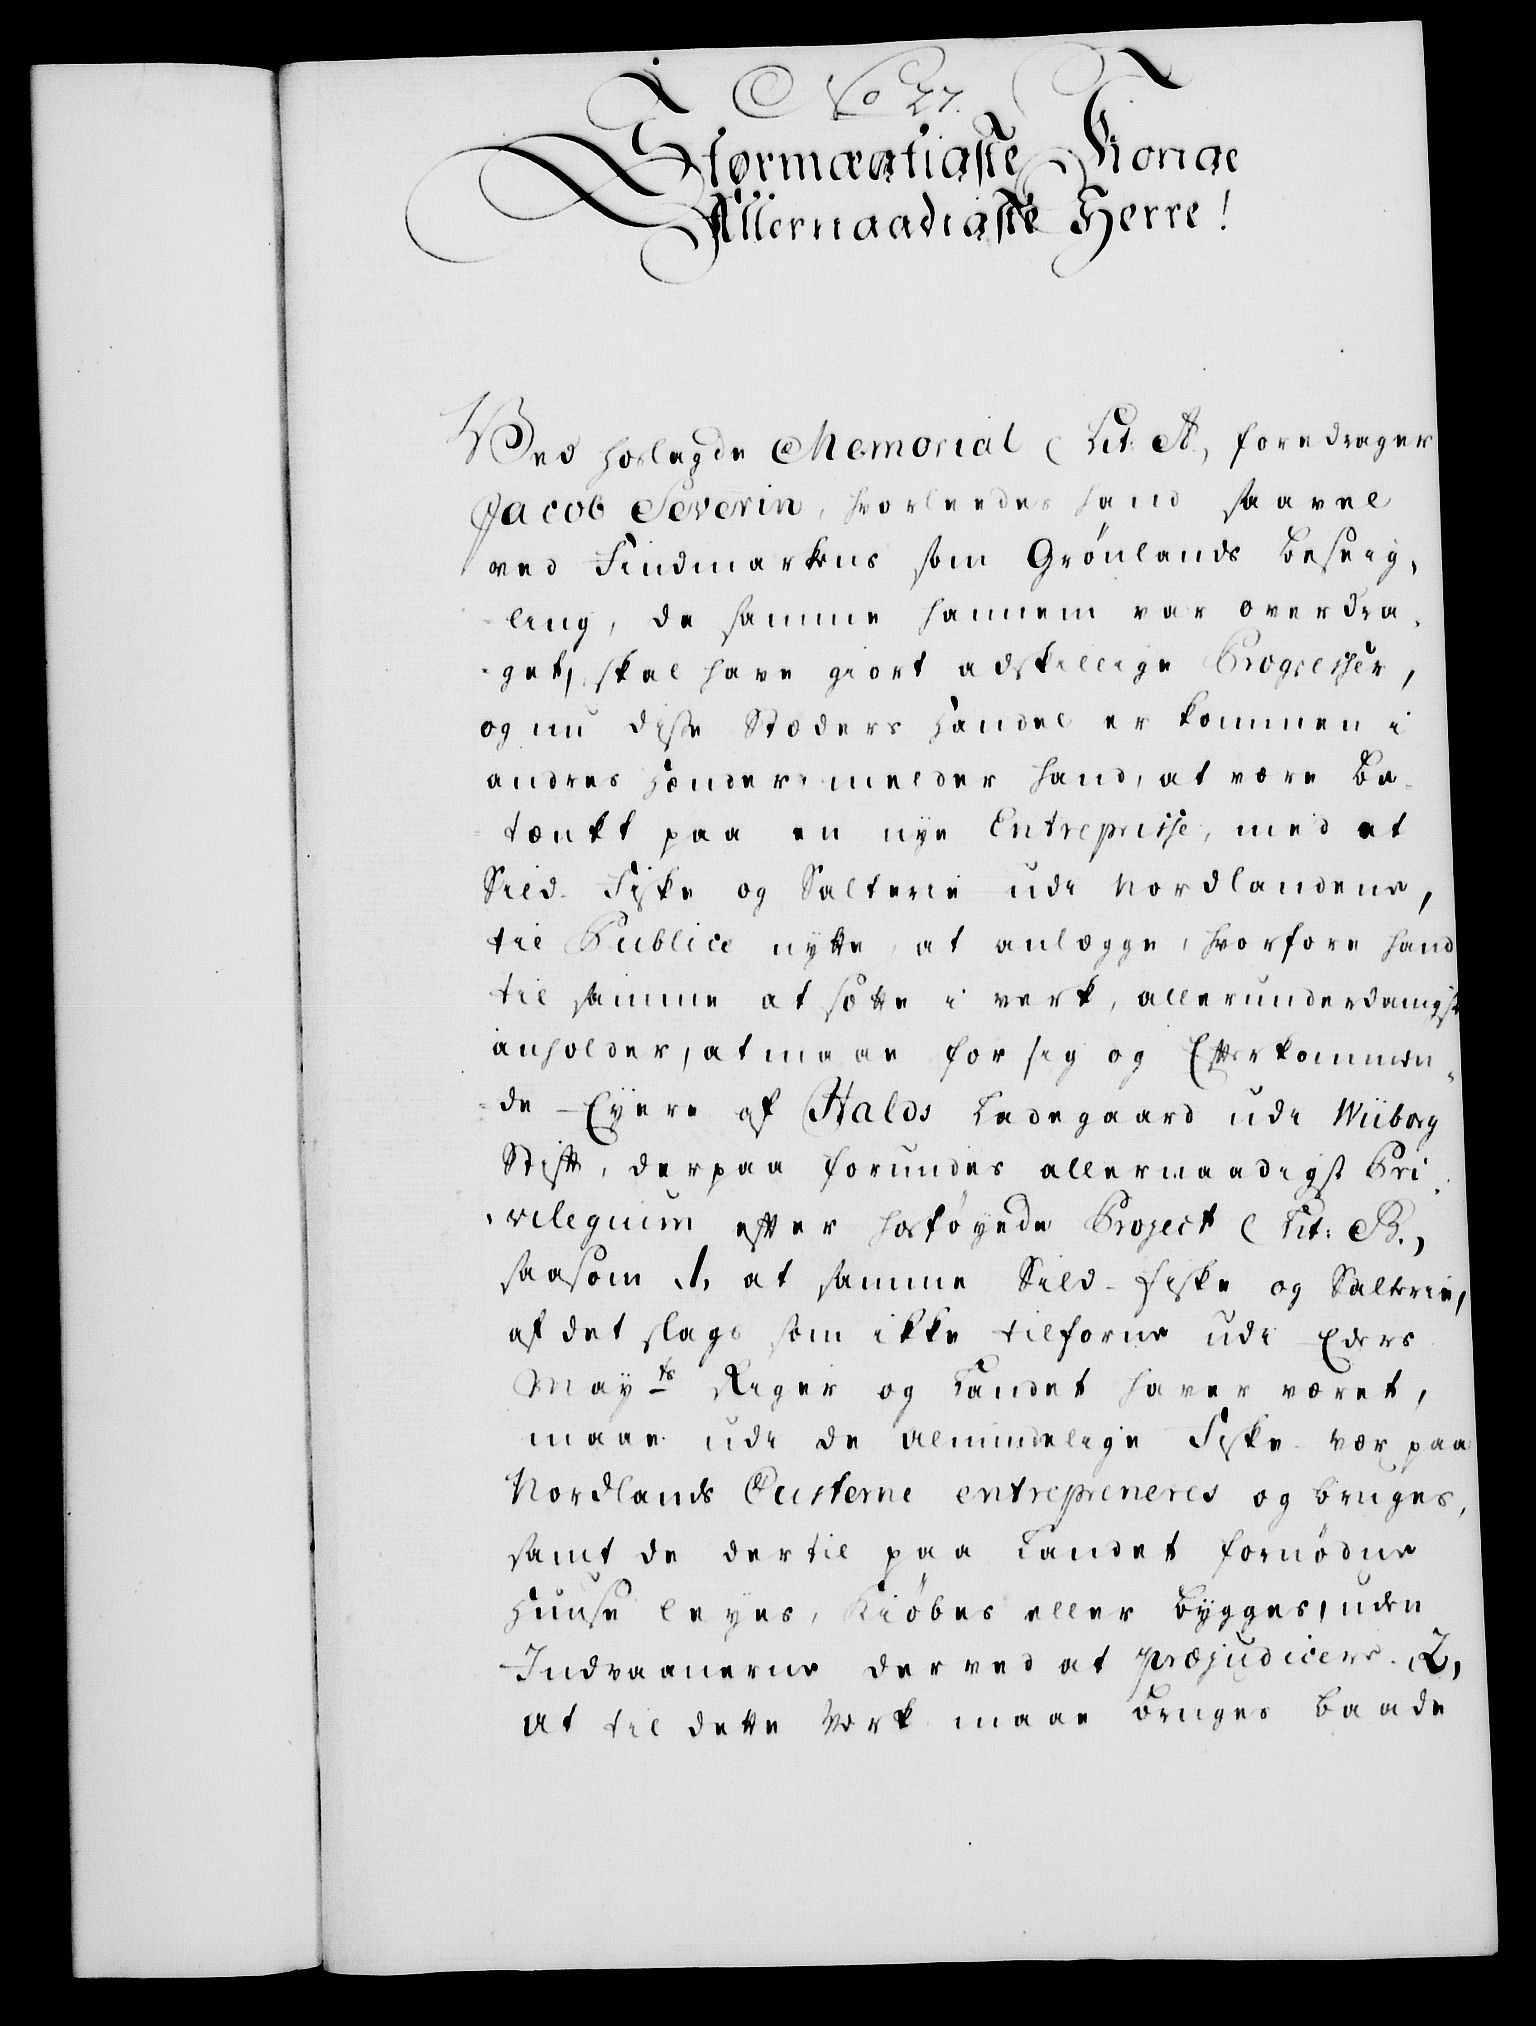 No 27.
Stormægtigste Konge
Allernaadigste Herre!
Ved hoslagde Memorial (Lit: A, foredrager
Jacob Severin, hvorleedes hand saavel
ved Findmarkens som Grönlands Beseig,
-ling, da samme hannem var overdra,
-get, skal have giort adskillige Progresser,
og nu disse Stæders Handel er kommen i
andres Hænder, melder hand, at være be-
-tænkt paa en nye Entreprisse, med et
Sild-Fiske og Salterie udi Nordlandene,
til Publici nytte, at anlægge, hvorfore hand
til samme at sætte i verk, allerunderdanigst
anholder, at maae for sig og Efterkommen,
-de Eyere af Halds Ladegaard udi Wiiborg
Stift, derpaa forundes allernaadigst Pri,
,vilegium efter hosföyede Project (Lit: B.,
saasom 1, at samme Sild-Fiske og Salterie,
af det slags som ikke tilforne udi Eders
Mayts Riger og Landet haver været,
maae udi de almindelige Fiske-vær paa
Nordlands Custerne entrepreneres og bruges,
samt de dertil paa Landet fornödne
Huuse leyes, Kiöbes eller bygges, uden
Indvaanerne derved at præjudicere. 2,
at til dette Verk maae bruges baade